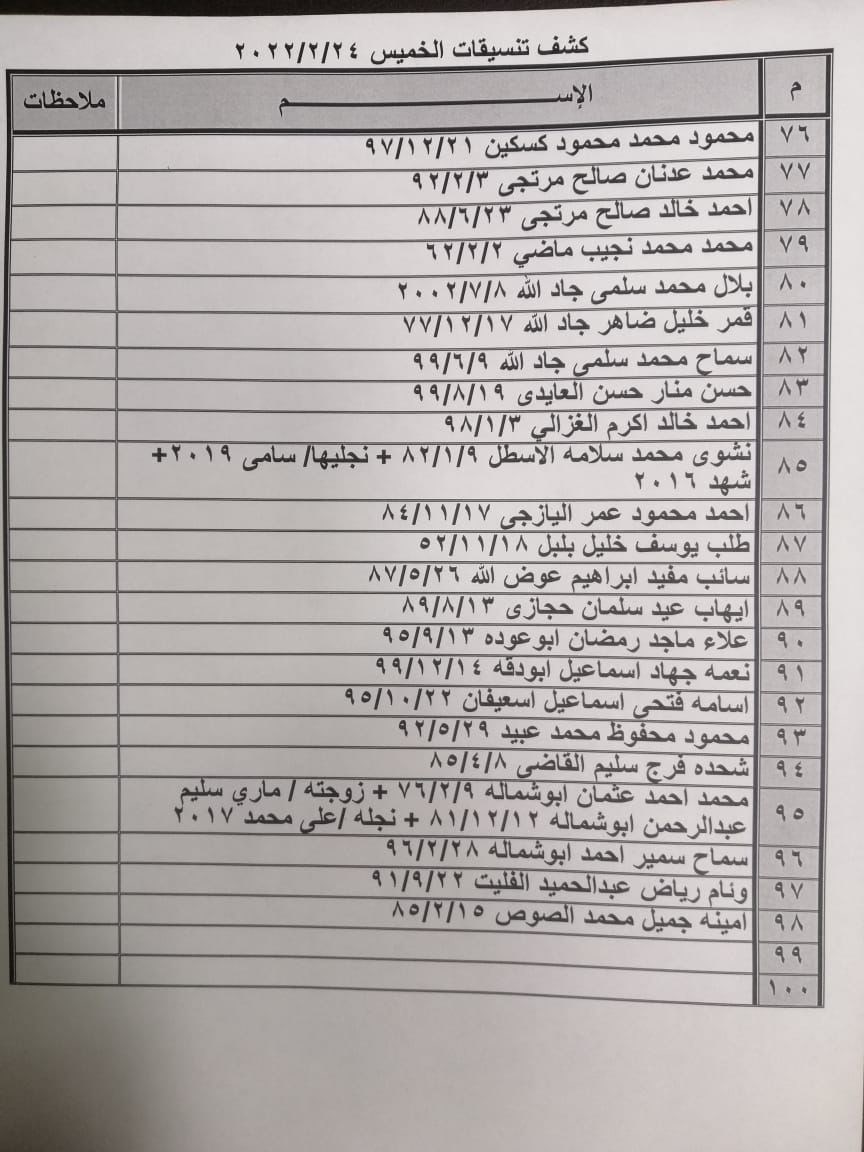 كشف تنسيقات الخميس ٢٠٢٢/٢/٢٤
م الإســـــــــــــم ملاحظات
٧٦ محمود محمد محمود كسكين ٩٧/١٢/٢١
٧٧ محمد عدنان صالح مرتجى ٩٢/٢/٣
٧٨ احمد خالد صالح مرتجى ٨٨/٦/٢٣
٧٩ محمد محمد نجيب ماضي ٦٢/٢/٢
٨٠ بلال محمد سلمى جاد الله ٢٠٠٢/٧/٨
٨١ قمر خليل ضاهر جاد الله ٧٧/١٢/١٧
٨٢ سماح محمد سلمى جاد الله ٩٩/٦/٩
٨٣ حسن منار حسن العايدى ٩٩/٨/١٩
٨٤ احمد خالد اكرم الغزالي ٩٨/١/٣
٨٥ نشوى محمد سلامه الاسطل ٨٢/١/٩ + نجليها/ سامى ٢٠١٩+
شهد ٢٠١٦
٨٦ احمد محمود عمر اليازجى ٨٤/١١/١٧
٨٧ طلب يوسف خليل بلبل ٥٢/١١/١٨
٨٨ سائب مفيد ابراهيم عوض الله ٨٧/٥/٢٦
٨٩ ايهاب عيد سلمان حجازى ٨٩/٨/١٣
٩٠ علاء ماجد رمضان ابوعوده ٩٥/٩/١٣
٩١ نعمه جهاد اسماعيل ابودقه ٩٩/١٢/١٤
٩٢ اسامه فتحى اسماعيل اسعيفان ٩٥/١٠/٢٢
٩٣ محمود محفوظ محمد عبيد ٩٢/٥/٢٩
٩٤ شحده فرج سليم القاضى ٨٥/٤/٨
٩٥ محمد احمد عثمان ابوشماله ٧٦/٢/٩ + زوجته / ماري سليم
عبدالرحمن ابوشماله ٨١/١٢/١٢ + نجله /على محمد ٢٠١٧
٩٦ سماح سمير احمد ابوشماله ٩٦/٢/٢٨
٩٧ وئام رياض عبدالحميد الفليت ٩١/٩/٢٢
٩٨ امينه جميل محمد الصوص ٨٥/٢/١٥
٩٩
١٠٠